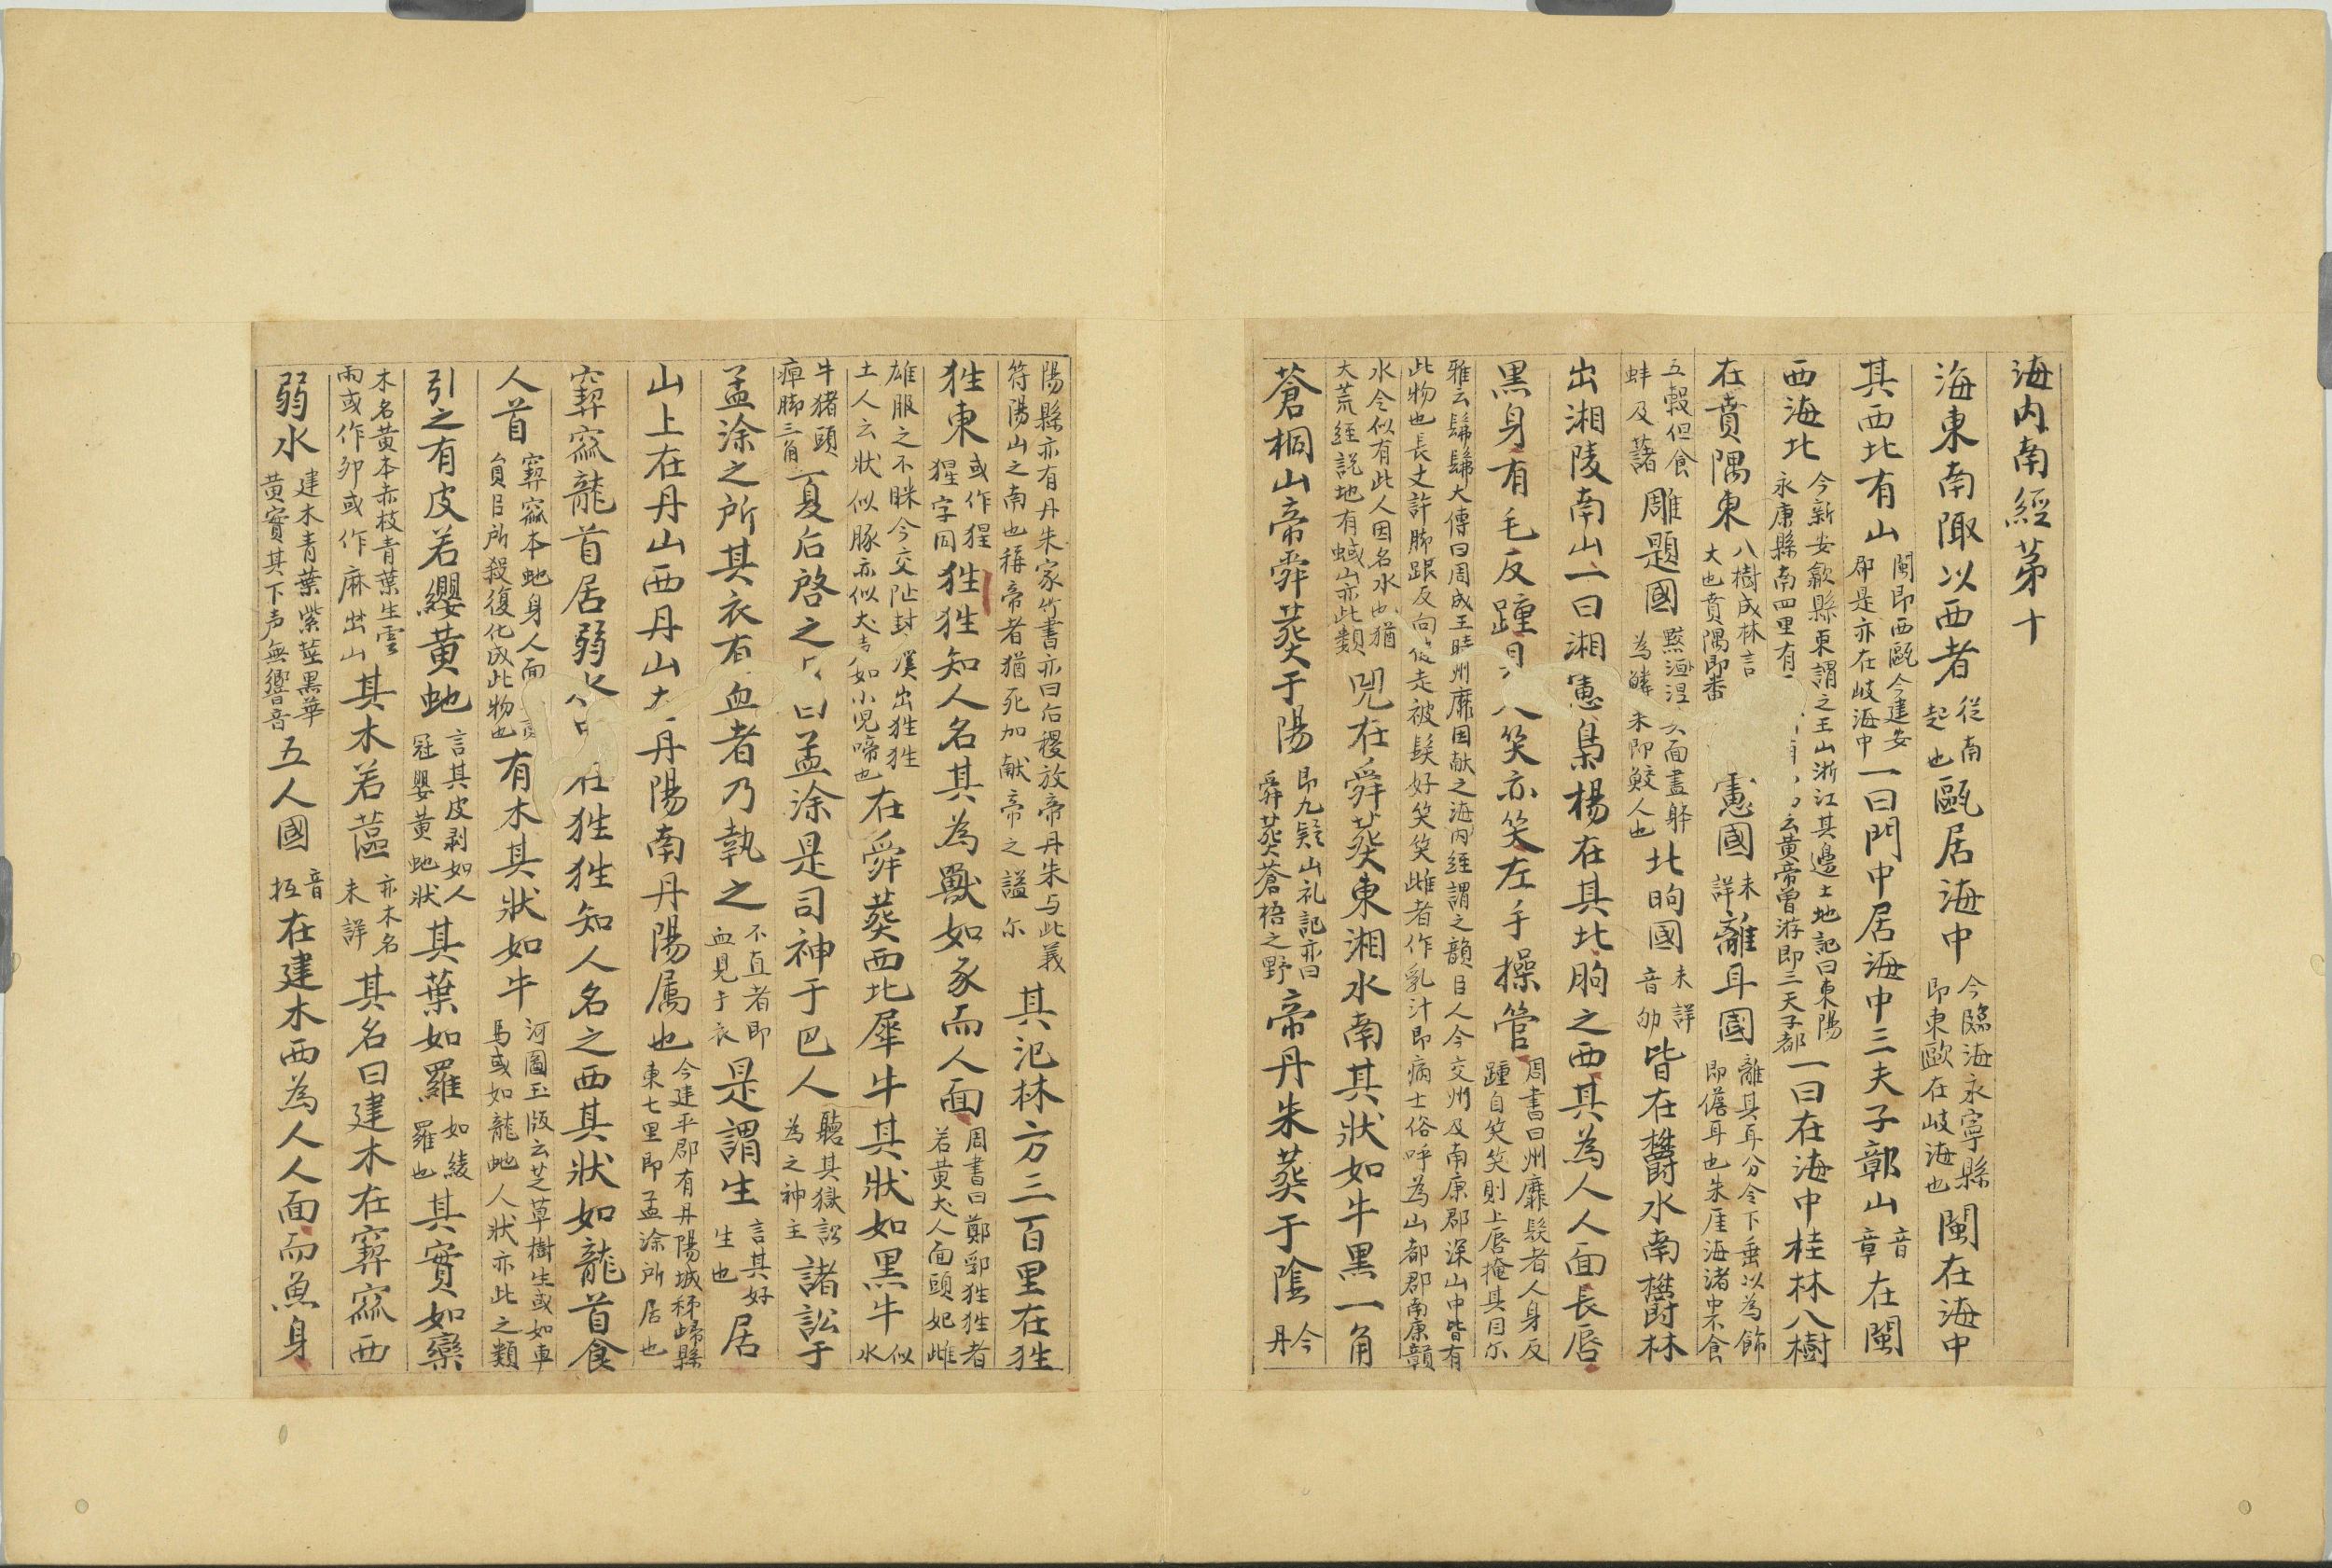 海内南經苐十
海東南陬以西者從南起也甌居海中今臨海永寧縣即東歐在岐海也閩在海中
其西北有山閩即西甌今建安郡是亦在岐海中一曰門中居海中三夫子鄣山音章在閩
西海北今新安歙縣東謂之王山浙江其邊土地記曰東陽永康縣南四里有云黄帝曾游即三天子都一曰在海中桂林八樹
在賁隅東八樹成林言大也賁隅即番憲國未詳離耳國離其耳分令下垂以為飾即儋耳也朱厓海渚中不食
五穀但食蚌及藷雕題國黥涅面畫躰為鱗未即鮫人也北朐國未詳音皆在欝水南欝林
出湘陵南山一曰湘憲梟楊在其北朐之西其為人人面長唇
黒身有毛反踵笑亦笑左手操管周書曰州靡髮者人身反踵自笑笑則上唇掩其目尔
雅云髴髴大傳曰周成王時州靡国献之海内經謂之贑巨人今交州及南康郡深山中皆有此物也長丈許脚跟反向走被髮好笑笑雌者作乳汁即病士俗呼為山都郡南康贑
水今似有此人因名水也猶大荒經説地有蜮山亦此類兕在舜葬東湘水南其狀如牛黒一角
蒼桐山帝舜葬于陽即九疑山礼記亦曰舜葬蒼梧之野帝丹朱葬于隂今丹
陽縣亦有丹朱家竹書亦曰后稷放帝丹朱与此義符陽山之南也稱帝者猶死加献帝之謚尔其汜林方三百里在狌
狌東或作猩猩字同狌狌知人名其為獸如豕而人面周書曰鄭郭狌狌者若黄犬人面頭妃雌
雄服之不眯今交阯封溪出狌狌土人云狀似豚亦似犬如小兒啼也在舜葬西北犀牛其狀如黒牛似水
牛猪頭痺脚三角夏后啓之曰孟涂是司神于巴人聽其獄訟為之神主諸訟于
孟涂之所其衣有血者乃執之不直者即血見于衣是謂生言其好生也居
山上在丹山西丹山在丹陽南丹陽属也今建平郡有丹陽城秭歸縣東七里即孟涂所居也
窫窳龍首居弱水在狌狌知人名之西其狀如龍首食
人首窫窳本虵身人面貟臣所殺復化成此物也有木其狀如牛河圖玉版云芝草樹生或如車馬或如龍虵人狀亦此之類
引之有皮若纓黄虵言其皮剥如人冠嬰黄虵狀其葉如羅如綾羅也其實如欒
木名黄本赤枝青葉生雲雨或作卵或作麻出山其木若蓲亦木名未詳其名曰建木在窫窳西
弱水建木青葉紫莖黒華黄實其下声無響音五人國音在建木西為人人面而魚身